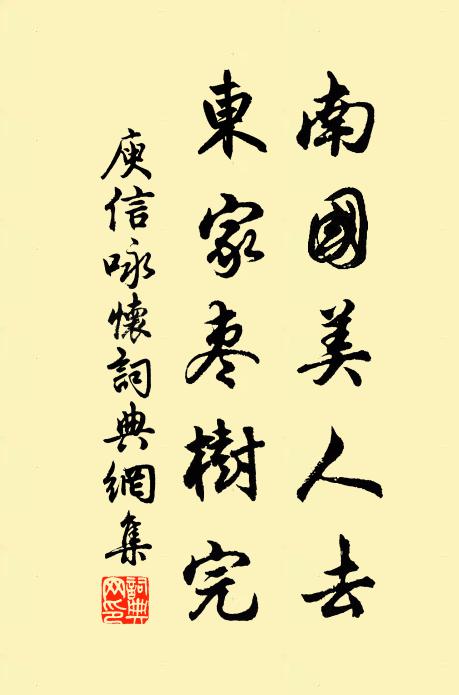 南國美人去
東家枣樹完
庾信咏懷詞典網集
詞典网印